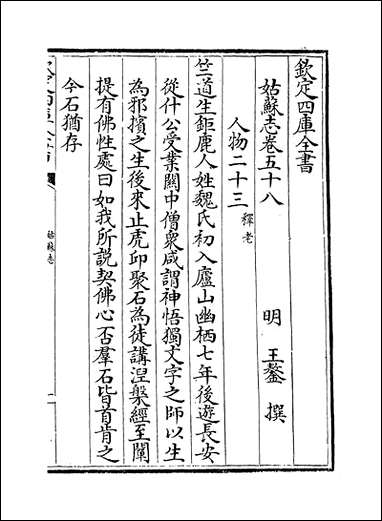 欽定四庫全書
姑蘇志卷五十八
明 王鏊 撰
人物二十三 釋老
竺道生鉅鹿人姓魏氏初入廬山幽栖七年後遊長安
從什公受業關中僧衆咸謂神悟獨文字之師以生
為邪擯之生後來止虎邱聚石為徒講湼槃經至闡
提有佛性處曰如我所說契佛心否羣石皆首肯之
今石猶存
姑蘇志